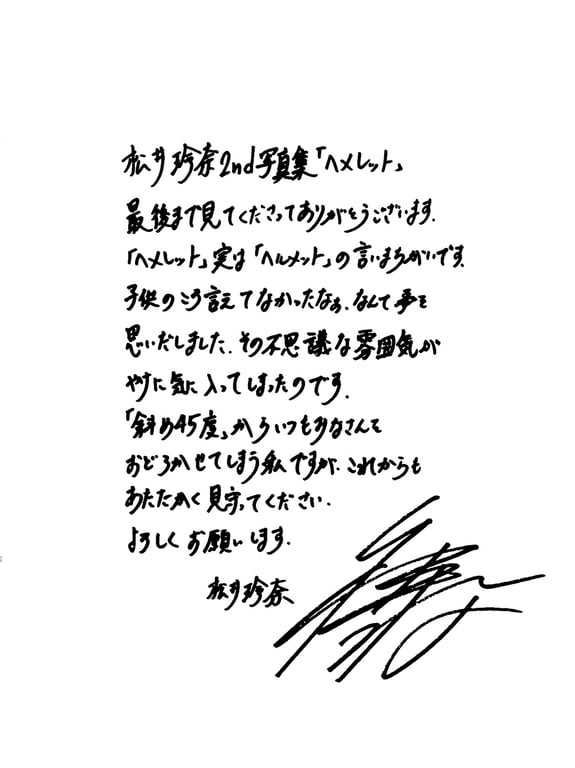 松井玲奈2nd写真集「ヘメレット」
最後まで見てくださってありがとうございます.
「ヘメレット」実は「ヘルメット」の言いまちがいです.
子供のころ言えてなかったなぁ、なんて事を
思いだしました.その不思議な雰囲気が
やけに気に入ってしまったのです.
「斜め45度」からいつもみなさんを
おどろかせてしまう私ですが、これからも
あたたかく見守ってください.
よろしくお願いします.
松井玲奈